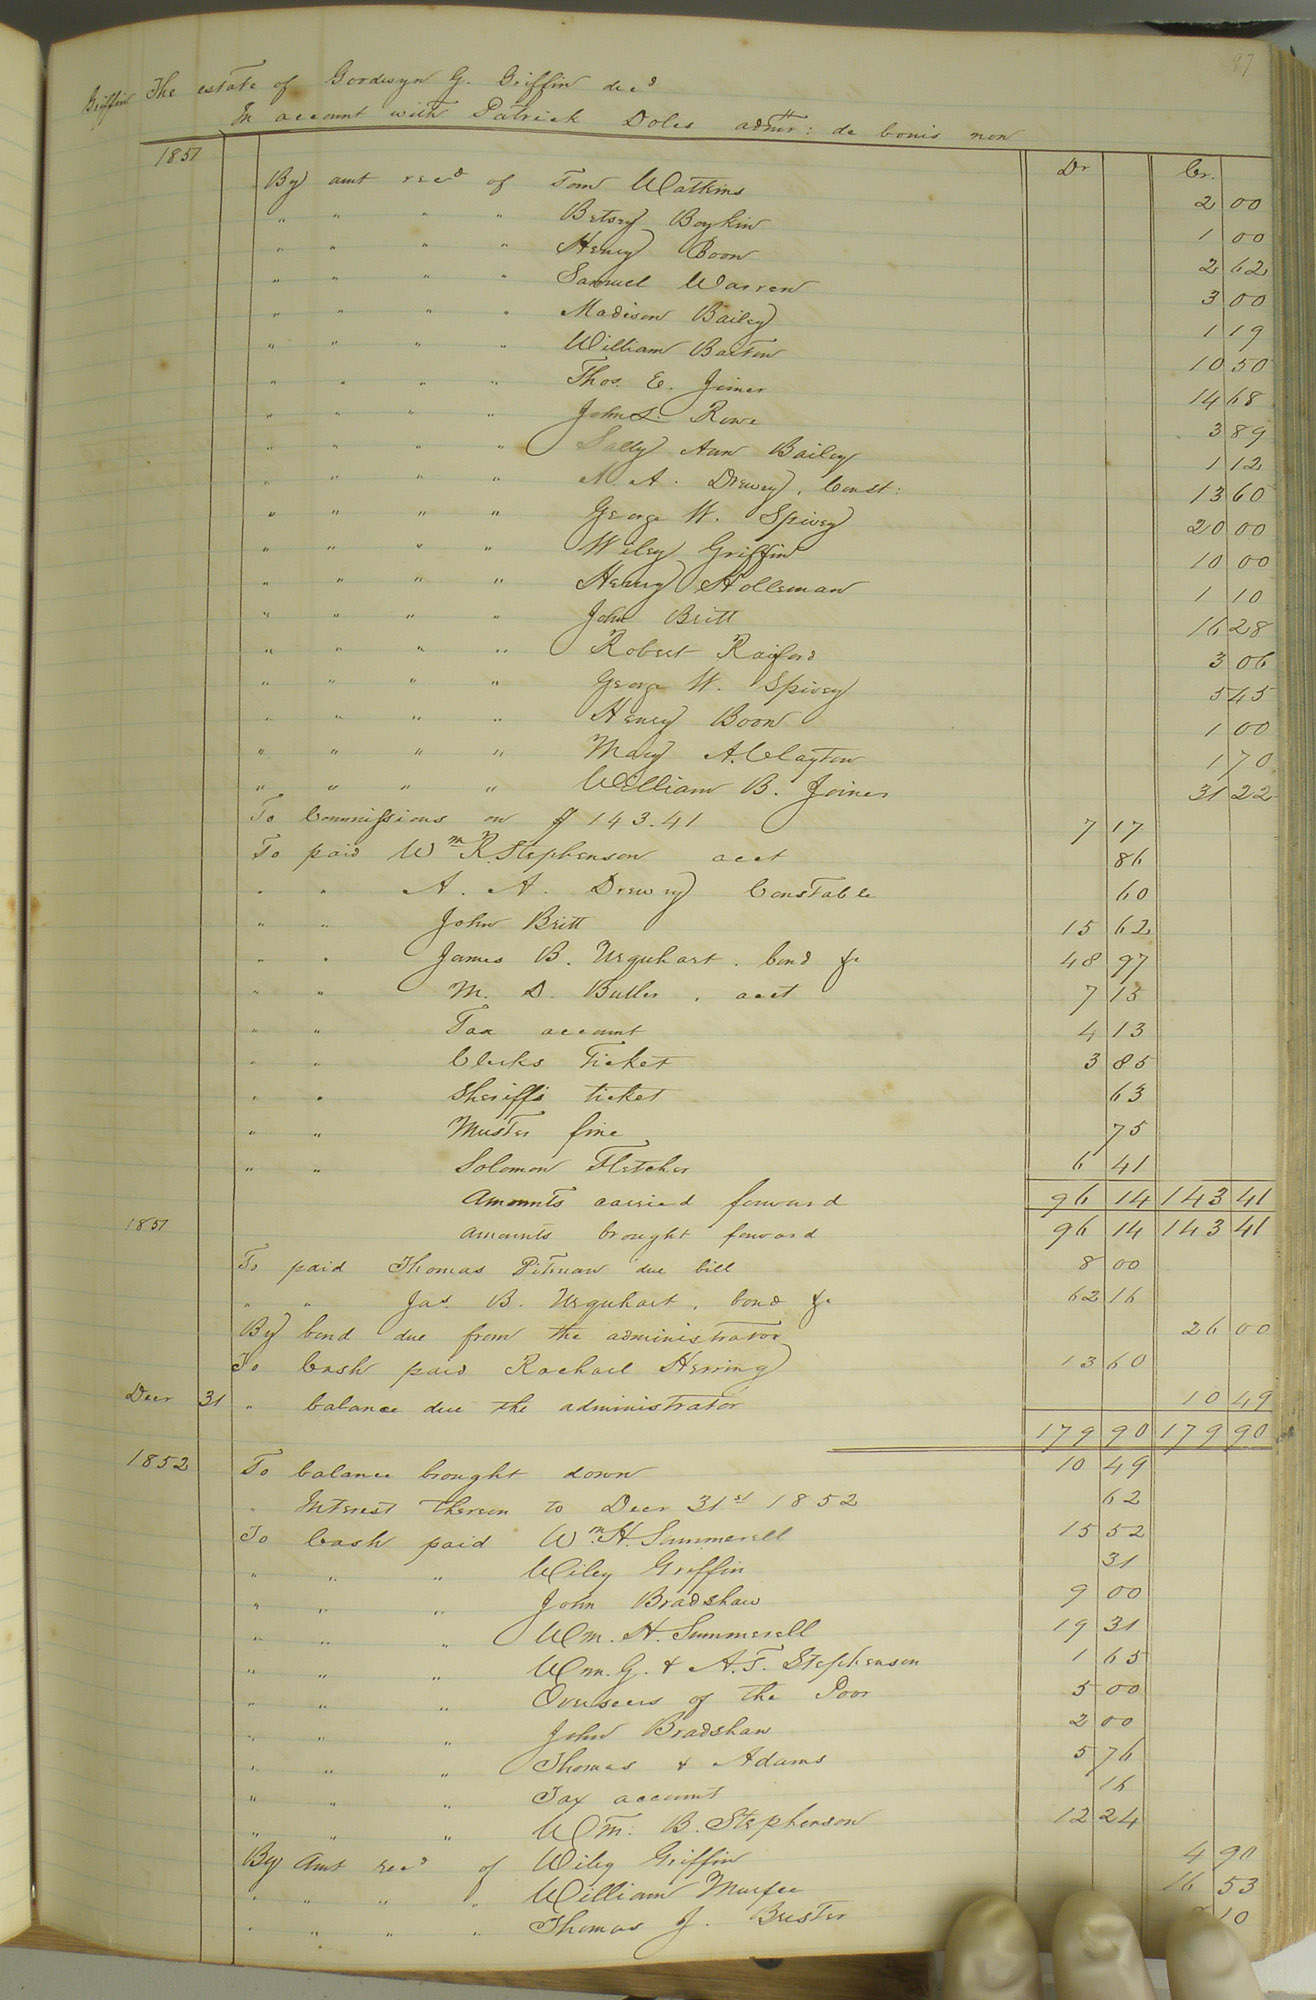 87
Griffin The estate of Gordwyn G. Griffin decd
In account with Patrick Doles admr: de bonis non
1851 Dr Cr.
By amt recd of Tom Watkins 2 00
" " " " Betsey Boykin 1 00
" " " " Henry Boon 2 62
" " " " Samuel Warren 3 00
" " " " Madison Bailey 1 19
" " " " William Barten 10 50
" " " " Thos. E. Joiner 14 68
" " " " John S. Rowe 3 89
" " " " Sally Ann Bailey 1 12
" " " " A. A. Drewey, Const: 13 60
" " " " George W. Spivey 20 00
" " " " Wiley Griffin 10 00
" " " " Henry Holleman 1 10
" " " " John Britt 16 28
" " " " Robert Raiford 3 06
" " " " George W. Spivey 5 45
" " " " Henry Boon 1 00
" " " " Mary A. Clayton 1 70
" " " " William B. Joiner 31 22
To Commissions on $143.41 7 17
To paid Wm R. Stephenson acct 86
" " A. A. Drewey Constable 60
" " John Britt 15 62
" " James B. Urquhart. bond &c 48 97
" " M. D. Butler, acct 7 15
" " Tax account 4 13
" " Clerks Ticket 3 85
" " Sheriffs ticket 63
" " Muster fine 75
" " Solomon Fletcher 6 41
Amounts carried forward 96 14 143 41
1851 Amounts brought forward 96 14 143 41
To paid Thomas Pitman due bill 8 00
" " Jas. B. Urquhart, bond &c 62 16
By bond due from the administrator 26 00
To Cash paid Rachael Herring 13 60
Decr 31 " balance due the administrator 10 49
179 90 179 90
1852 To balance brought down 10 49
" Interest thereon to Decr 31st 1852 62
To Cash paid Wm H. Summerell 15 52
" " " Wiley Griffin 31
" " " John Bradshaw 9 00
" " " Wm. H. Summerell 19 31
" " " Wm. G. & A. T. Stephenson 1 65
" " " Overseers of the Poor 5 00
" " " John Bradshaw 2 00
" " " Thomas & Adams 5 76
" " " Tax account 16
" " " Wm. B. Stephenson 12 24
By Amt recd of Wiley Griffin 4 90
" " " " William Murfee 16 53
" " " " Thomas J. Brister 10